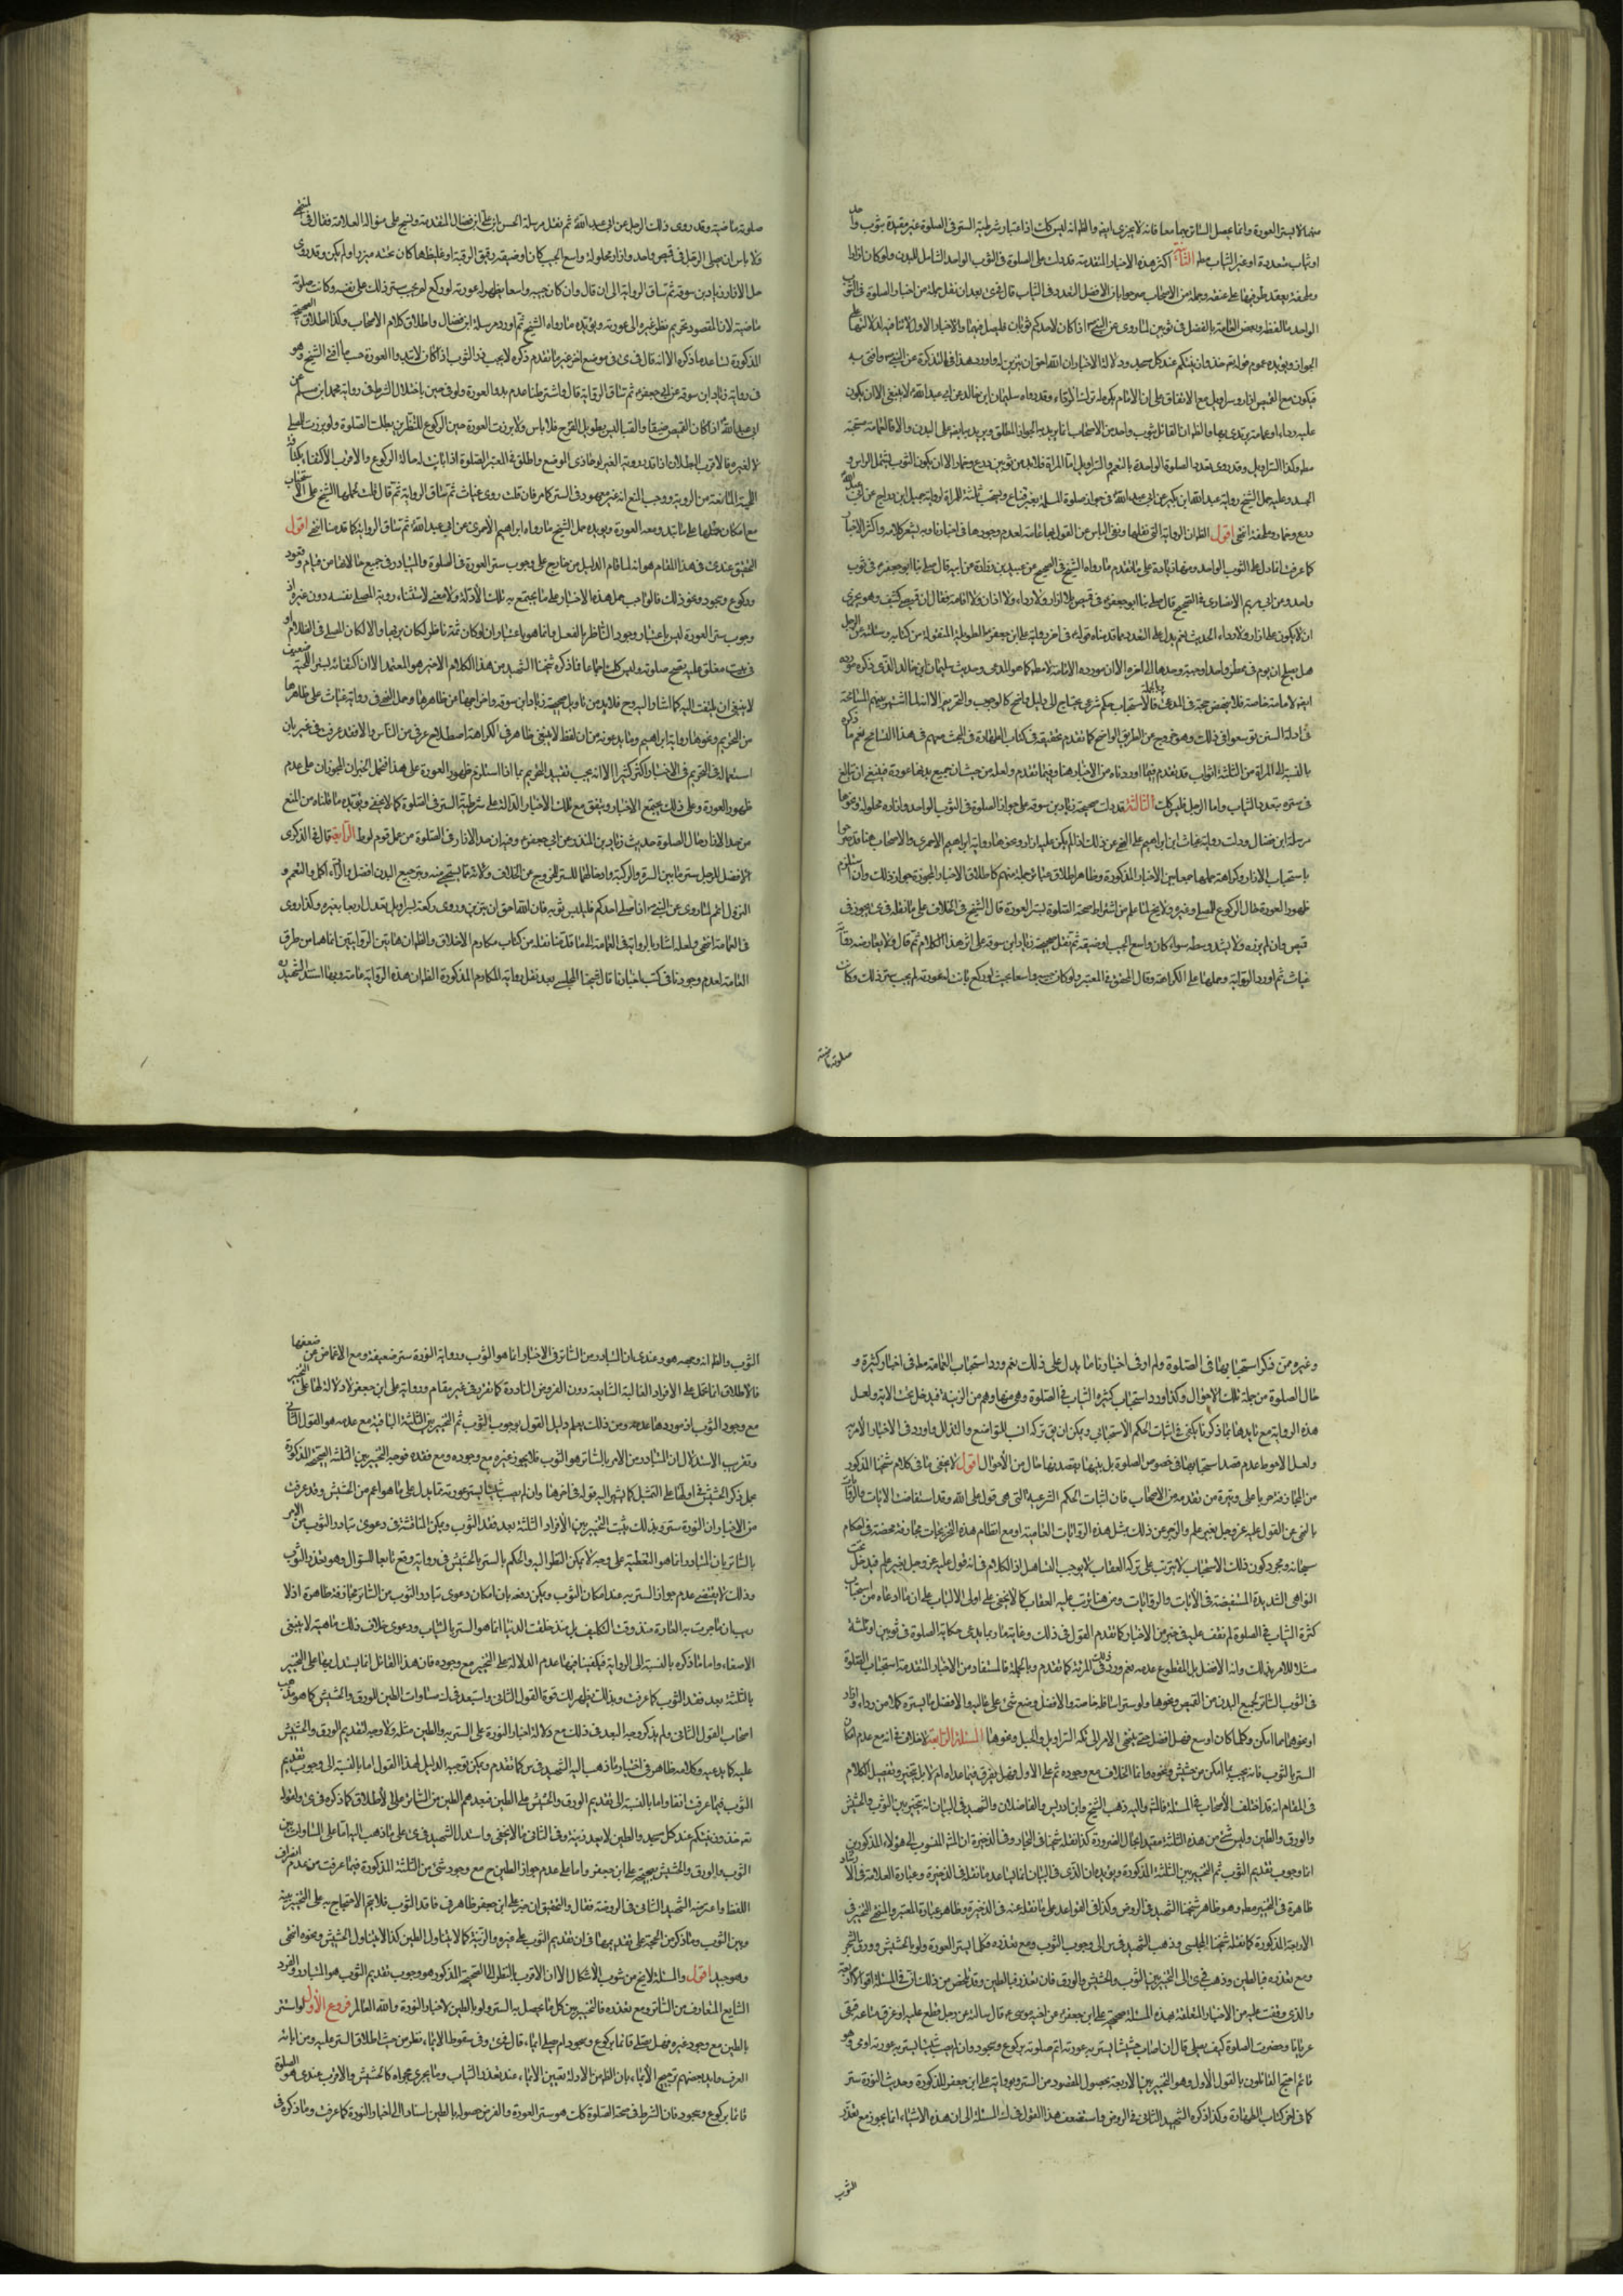 منها لا يستر العورة وانما يحصل الستر بهما معا فانه لا يجزى ايضا والظ انه ليس كك اذ اعتبار شرطية الستر فى الصلوة غير مقيدة بثوب واحد
او ثياب متعددة او غير الثياب مطلقا الثانية اكثر هذه الاخبار المتقدمة قد دلت على الصلوة فى الثوب الواحد الشامل للبدن ولو كان ازارا
وملحفة يعقد طرفيها على عنقه وجملة من الاصحاب صرحوا بان الافضل التعدد فى الثياب قال فى كرى بعد ان نقل جملة من اخبار الصلوة فى الثوب
الواحد والفضل فى ثوبين لما روى عن النبى ص اذا كان لاحدكم ثوبان فليصل فيهما والاخبار الاول لا تنافيه لدلالتها على
الجواز ويؤيده عموم قوله تعالى خذوا زينتكم عند كل مسجد ودلالة الاخبار ان الله احق ان يتزين له واورد هذا فى التذكرة عن النبى ص وافتى به
فيكون مع القميص ازار وسراويل مع الاتفاق على ان الامام يكره له ترك الرداء وقد رواه سليمان بن خالد عن ابى عبد الله ع لا ينبغى الا ان يكون
عليه رداء او عمامة يرتدى بها والظ ان القائل بثوب واحد من الاصحاب انما يريد به الجواز المطلق ويريد به ايضا على البدن والا فالعمامة مستحبة
مطلقا وكذا السراويل وقد روى تعدد الصلوة الواحدة بالتعمم والتسرول اما المراة فلا بد من ثوبين درع وخمار الا ان يكون الثوب يشمل الراس و
الجسد وعليه حمل الشيخ رواية عبد الله ابن بكير عن ابى عبد الله ع فى جواز صلوة المسلمة بغير قناع ويستحب ثلاثة للمراة لرواية جميل ابن دراج عن ابى عبد الله ع
درع وخمار وملحفة انتهى اقول الظ ان الرواية التى نقلها ونفى الباس عن القول بها عامية لعدم وجودها فى اخبارنا وبه يشعر كلامه واكثر الاخبار
كما عرفت انما دل على الثوب الواحد ومنها زيادة على ما تقدم ما رواه الشيخ فى الصحيح عن عبيد بن زرارة عن ابيه قال صلى بنا ابو جعفر ع فى ثوب
واحد وعن ابى مريم الانصارى فى الصحيح قال صلى بنا ابو جعفر ع فى قميص بلا ازار ولا رداء ولا اذان ولا اقامة فقال ان قميصى كثيف وهو يجزى
ان لا يكون على ازار ولا رداء الحديث نعم يدل على التعدد ما قدمناه قوله فى اخر رواية على ابن جعفر ع الطويلة المنقولة من كتابه وسئلته عن الرجل
هل يصلح ان يؤم فى ممطر وحده او جبة وحدها الى اخره الا ان مورده الامامة لا مطلقا كما هو المدعى وحديث سليمان ابن خالد الذى ذكره مورده
ايضا الامامة خاصة فلا ينهض حجة فى المدعى وبالجملة فالاستحباب حكم شرعى يحتاج الى دليل واضح كالوجوب والتحريم الا انه لما اشتهر بينهم المسامحة
فى ادلة السنن توسعوا فى ذلك وهو خروج عن الطريق الواضح كما تقدم تحقيقه فى كتاب الطهارة فى البحث معهم فى هذا التسامح نعم ما ذكره
بالنسبة الى المراة من الثلاثة اثواب قد تقدم فيما اوردناه من الاخبار هنا وفيما تقدم ولعله من حيث ان جميع بدنها عورة فينبغى ان تبالغ
فى ستره بتعدد الثياب واما الرجل فليس كك الثالثة قد دلت صحيحة زياد بن سوقة على جواز الصلوة فى الثوب الواحد وازراره محلولة ونحوها
مرسلة ابن فضال ودلت رواية غياث بن ابراهيم على النهى عن ذلك اذا لم يكن عليه ازار ونحوها رواية ابراهيم الاحمرى فالاصحاب هنا قد صرحوا
باستحباب الازار وكراهة حلها جمعا بين الاخبار المذكورة وظاهر اطلاق عبائر جملة منهم كاطلاق الاخبار المجوزة جواز ذلك وان استلزم
ظهور العورة حال الركوع للمصلى وغيره ولا يخ لما علم من اشتراط صحة الصلوة بستر العورة قال الشيخ فى الخلاف على ما نقله فى كرى يجوز فى
قميص وان لم يزره ولا يشد وسطه سواء كان واسع الجيب او ضيقه ثم نقل صحيحة زياد ابن سوقة على اثر هذا الكلام ثم قال ولا يعارضه رواية
غياث ثم اورد الرواية وحملها على الكراهة وقال المحقق فى المعتبر ولو كان جيبه واسعا بحيث لو ركع بانت له عورته لم يجب ستر ذلك وكانت
صلوته ماضية
صلوته ماضية وقد روى ذلك الرجل عن ابى عبد الله ع ثم نقل مرسلة الحسن ابن على ابن فضال المتقدمة ونسج على منواله العلامة فقال فى المنتهى
ولا باس ان يصلى الرجل فى قميص واحد وازراره محلولة واسع الجيب كان او ضيقه دقيق الرقبة او غليظها كان تحته ميزر او لم يكن وقد روى
حل الازرار زياد بن سوقة ثم ساق الرواية الى ان قال وان كان جيبه واسعا بظهر له عورته لو ركع لم يجب ستر ذلك على نفسه وكانت صلوته
ماضية لان المقصود تحريم نظر غيره الى عورته ويؤيده ما رواه الشيخ ثم اورد مرسلة ابن فضال واطلاق كلام الاصحاب وكذا اطلاق الصحيحة
المذكورة تساعد ما ذكره الا انه قال فى كرى فى موضع اخر غير ما تقدم ذكره لا يجب زر الثوب اذا كان لا تبدوا العورة حسبما افتى الشيخ وهو
فى رواية زياد ابن سوقة عن ابى جعفر ع ثم ساق الرواية قال واشترطنا عدم بدو العورة ولو فى حين باختلال الشرط فى رواية محمد ابن مسلم عن
ابى عبد الله ع اذا كان القميص ضيقا والقباء ليس بطويل الفرج فلا باس ولا برزت العورة حين الركوع للناظرين بطلت الصلوة ولو برزت للمصلى
لا لغيره فالاقرب البطلان اذا قدر رؤية الغير لو حاذى الموضع واطلق فى المعتبر الصلوة اذا بانت له حالة الركوع والاقرب الاكتفاء بكثافة
اللحية المانعة من الرؤية ووجب المنع انه غير معهود فى الستر كما مر فان قلت روى غياث ثم ساق الرواية ثم قال قلت حملها الشيخ على الاستحباب
مع امكان حملها على ما تبدو معه العورة ويؤيده حمل الشيخ ما رواه ابراهيم الاحمرى عن ابى عبد الله ع ثم ساق الرواية كما قدمنا انتهى اقول
التحقيق عندى فى هذا المقام هو انه لما قام الدليل من خارج على وجوب ستر العورة فى الصلوة والمتبادر فى جميع حالاتها من قيام وقعود
وركوع وسجود ونحو ذلك فالواجب حمل هذه الاخبار على ما يجتمع به تلك الادلة ولا معنى لاستثناء رؤية المصلى بنفسه دون غيره اذ
وجوب ستر العورة ليس باعتبار وجود الناظر بالفعل وانما هو باعتبار ان لو كان ثمة ناظر لكان يرى لها والا لكان المصلى فى الظلام او
فى بيت مغلق عليه تصح صلوته وليس كك اجماعا فما ذكره شيخنا الشهيد من هذا الكلام الاخير هو المعتمد الا ان اكتفائه بستر اللحية ضعيف
لا ينبغى ان يلتفت اليه كما اشار اليه وح فلا بد من تاويل صحيحة زياد ابن سوقة واخراجها من ظاهرها وحمل النهى فى رواية غياث على ظاهرها
من التحريم ونحوها رواية ابراهيم وما يدعونه من ان لفظ لا ينبغى ظاهر فى الكراهة اصطلاح عرفى من الناس والا فقد عرفت فى غير باب
استعماله فى التحريم فى الاخبار اكثر كثيرا الا انه يجب تقييد التحريم بما اذا استلزم ظهور العورة على هذا فتحمل الخبران المجوزان على عدم
ظهور العورة وعلى ذلك تجتمع الاخبار ويتفق مع تلك الاخبار الدالة على شرطية الستر فى الصلوة كما لا يخفى ويؤيده ما قلناه من المنع
من حل الازرار حال الصلوة حديث زياد بن المنذر عن ابى جعفر ع وفيه ان حل الازرار فى الصلوة من عمل قوم لوط الرابعة قال فى الذكرى
الافضل للرجل ستر ما بين السرة والركبة وادخالهما للستر للخروج من الخلاف ولانه مما يستحيى منه وستر جميع البدن افضل والرداء اكمل والتعمم و
التسرول اتم لما روى عن النبى ص اذا صلى احدكم فليلبس ثوبيه فان الله احق ان يتزين وروى ركعة بسراويل تعدل اربعا بغيره وكذا روى
فى العمامة انتهى ولعله اشار بالرواية فى العمامة الى ما قدمنا نقله من كتاب مكارم الاخلاق والظ ان هاتين الروايتين انما هما من طرق
العامة لعدم وجودها فى كتب اخبارنا قال شيخنا المجلسى بعد نقل رواية المكارم المذكورة الظ ان هذه الرواية عامية وبها استدل الشهيد ره
وغيره ممن ذكر استحبابها فى الصلوة ولم ار فى اخبارنا ما يدل على ذلك نعم ورد استحباب العمامة مطلقا فى اخبار كثيرة و
حال الصلوة من جملة تلك الاحوال وكذا ورد استحباب كثرة الثياب فى الصلوة وهى منها وهى من الزينة فيدخل تحت الاية ولعل
هذه الرواية مع تايدها بما ذكرنا يكفى فى اثبات الحكم الاستحبابى ويمكن ان يق تركه انسب للتواضع والتذلل واورد فى الاخبار الامر به
ولعل الاحوط عدم قصد استحبابها فى خصوص الصلوة بل يلبسها بقصد نها حال من الاحوال اقول لا يخفى ما فى كلام شيخنا المذكور
من المجازفة جريا على وتيرة من تقدمه من الاصحاب فان اثبات الحكم الشرعية التى هى قول على الله وقد استفاضت الايات والروايات
بالنهى عن القول عليه عز وجل بغير علم والزجر عن ذلك بمثل هذه الروايات العامية او مع انضمام هذه التخريجات مجازفة محضة فى احكام
سبحانه ومجرد كون ذلك الاستحباب لا يترتب على تركه العقاب لا يوجب التساهل اذ الكلام فى انه قول عليه عز وجل بغير علم فيدخل تحت
النواهى الشديدة المستفيضة فى الايات والروايات ومن هنا يترتب عليه العقاب كما لا يخفى على اولى الالباب على ان ما ادعاه من استحباب
كثرة الثياب فى الصلوة لم نقف عليه فى خبر من الاخبار كما تقدم القول فى ذلك وغاية ما ربما يدعى حكاية الصلوة فى ثوبين او ثلثة
مثلا للامر بذلك وانه الافضل بل المقطوع عدمه نعم ورد ذلك فى المرئة كما تقدم وبالجملة فالمستفاد من الاخبار المتقدمة استحباب الصلوة
فى الثوب الساتر لجميع البدن من القميص ونحوها ولو ستر اسافله خاصة والافضل وضع شئ على عاليه والافضل ما يستره كلا من رداء وازار
او نحوهما ما امكن وكلما كان اوسع فضل افضل حتى ينتهى الامر الى تكة السراويل والحبل ونحوها المسئلة الرابعة لا خلاف فى انه مع عدم امكان
الستر بالثوب فانه يجب بما امكن من حشيش ونحوه وانما الخلاف مع وجوده ثم على الاول فهل يفرق فيما عداه ام لا بل يتخير وتفصيل الكلام
فى المقام انه قد اختلف الاصحاب فى المسئلة فالمشهور واليه ذهب الشيخ وابن ادريس والفاضلان والشهيد فى البيان انه يتخير بين الثوب والحشيش
والورق والطين وليس شئ من هذه الثلثة مقيد بحال الضرورة كذا نقله شيخنا فى البحار وفى الذخيرة ان المشهور المنسوب الى هؤلاء المذكورين
انما وجوب تقديم الثوب ثم التخيير بين الثلثة المذكورة ويؤيده ان الذى فى البيان انما يساعد ما نقله فى الذخيرة وعبارة العلامة فى الارشاد
ظاهرة فى التخيير مطلقا وهو ظاهر شيخنا الشهيد فى الروض وكذا فى القواعد على ما نقله عنه فى الذخيرة وظاهر عبارة المعتبر والمنتهى التخيير فى
الاربعة المذكورة كما نقله شيخنا المجلسى وذهب الشهيد فى س الى وجوب الثوب ومع تعذره فكلما يستر العورة ولو بالحشيش وورق الشجر
ومع تعذره فبالطين وذهب فى كرى الى التخيير بين الثوب والحشيش والورق فان تعذر فبالطين وقد تلخص من ذلك ان فى المسئلة اقوالا اربعة
والذى وقفت عليه من الاخبار المتعلقة بهذه المسئلة صحيحة على ابن جعفر ع عن اخيه موسى ع قال سالته عن رجل قطع عليه او غرق متاعه فبقى
عريانا وحضرت الصلوة كيف يصلى قال ان اصاب حشيشا يستر به عورته اتم صلوته بركوع وسجود وان لم يصب شيئا يستر به عورته اومى وهو
قائم احتج القائلون بالقول الاول وهو التخيير بين الاربعة بحصول المقصود من الستر وبرواية على ابن جعفر المذكورة وحديث النورة ستر
كما فى اخر كتاب الطهارة وكذا ذكره الشهيد الثانى فى الروض واستضعف هذا القول فى ك استنادا الى ان هذه الاشياء انما يجوز مع تعذر
الثوب
الثوب والظ انه وجه هو وعندى ان المتبادر من الساتر فى الاخبار انما هو الثوب ورواية النورة ستر ضعيفة ومع الاغماض عن ضعفها
فالاطلاق انما يحمل على الافراد الغالبة الشايعة دون الفروض النادرة كما تقرر فى غير مقام ورواية على ابن جعفر لا دلالة لها على التخيير
مع وجود الثوب اذ موردها عدمه ومن ذلك يعلم دليل القول بوجوب الثوب ثم التخيير بين الثلثة الباقية مع عدمه هو القول الثانى
وتقريب الاستدلال ان المتبادر من الامر بالساتر هو الثوب فلا يجوز غيره مع وجوده ومع فقده فوجه التخيير بين الثلثة الصحيحة المذكورة
بحمل ذكر الحشيش فى اولها على التمثيل كما يشير اليه قوله فى اخرها وان لم يصب شيئا يستر عورته مما يدل على ما هو اعم من الحشيش وقد عرفت
من الاخبار ان النورة سترة وبذلك يثبت التخيير بين الافراد الثلثة بعد فقد الثوب ويمكن المناقشة فى دعوى تبادر الثوب من الامر
بالساتر بان المتبادر انما هو التغطية على وجه لا يمكن النظر اليه والحكم بالستر بالحشيش فى رواية وقع تابعا للسؤال وهو تعذر الثوب
وذلك لا يقتضى عدم جواز الستر به عند امكان الثوب ويمكن دفعه بان امكان دعوى تبادر الثوب من الساتر مجازفة ظاهرة اذ لا
ريب ان ما جرت به العادة منذ وقت التكليف بل منذ خلقت الدنيا انما هو الستر بالثياب ودعوى خلاف ذلك مما هيته لا ينبغى
الاصغاء واما ما ذكره بالنسبة الى الرواية فيكفينا فيها عدم الدلالة على التخيير مع وجوده فان هذا القائل انما يستدل بها على التخيير
بالثلثة بعد فقد الثوب كما عرفت وبذلك يظهر لك قوة القول الثانى واستبعد فى ك مساوات الطين الورق والحشيش كما هو مذهب
اصحاب القول الثانى ولم يذكر وجه البعد فى ذلك مع دلالة اخبار النورة على الستر به والطين مثله ولا وجه لتقديم الورق والحشيش
عليه كما يدعيه وكلامه ظاهر فى اختيار ما ذهب اليه الشهيد فى س كما تقدم ويمكن توجيه الدليل لهذا القول اما بالنسبة الى وجوب تقديم
الثوب فبما عرفت انفا واما بالنسبة الى تقديم الورق والحشيش على الطين فبعدم فهم الطين من الساتر على الاطلاق كما ذكره فى كرى ولقوله
تعالى خذوا زينتكم عند كل مسجد والطين لا يعد زينة وفى الثانى ما لا يخفى واستدل الشهيد فى كرى على ما ذهب اليه اما على المساوات بين
الثوب والورق والحشيش بصحيحة على ابن جعفر واما على عدم جواز الطين ح مع وجود شئ من الثلثة المذكورة فبما عرفت من عدم انصراف
اللفظ واعترضه الشهيد الثانى فى الروضة فقال والتحقيق ان خبر على ابن جعفر ظاهر فى فاقد الثوب فلا يتم الاحتجاج به على التخيير بينه
وبين الثوب وما ذكر من الحجة على تقديمها فى ان تقديم الثوب على غيره والزينة كما لا يتناول الطين كذا لا يتناول الحشيش ونحوه انتهى
وهو جيد اقول والمسئلة لا تخ من شوب الاشكال الا ان الاقرب بالنظر الى الصحيحة المذكور هو وجوب تقديم الثوب هو المتبادر والفرد
الشايع المتعارف من الساتر ومع تعذره فالتخيير بين كل ما يحصل به الستر ولو بالطين لاخبار النورة والله العالم فروع الاول لو استتر
بالطين مع وجود غيره فهل يصلى قائما بركوع وسجود ام يصلى ايماء قال فى كرى وفى سقوط الايماء نظر من حيث اطلاق الستر عليه ومن اباء
العرف وايد بعضهم ترجيح الايماء بان الظ من الادلة تعيين الايماء عند تعذر الثياب وما يجرى مجراه كالحشيش والاقرب عندى هو الصلوة
قائما بركوع وسجود فان الشرط فى صحة الصلوة كك هو ستر العورة والفرض حصوله بالطين استنادا الى اخبار النورة كما عرفت وما ذكره فى